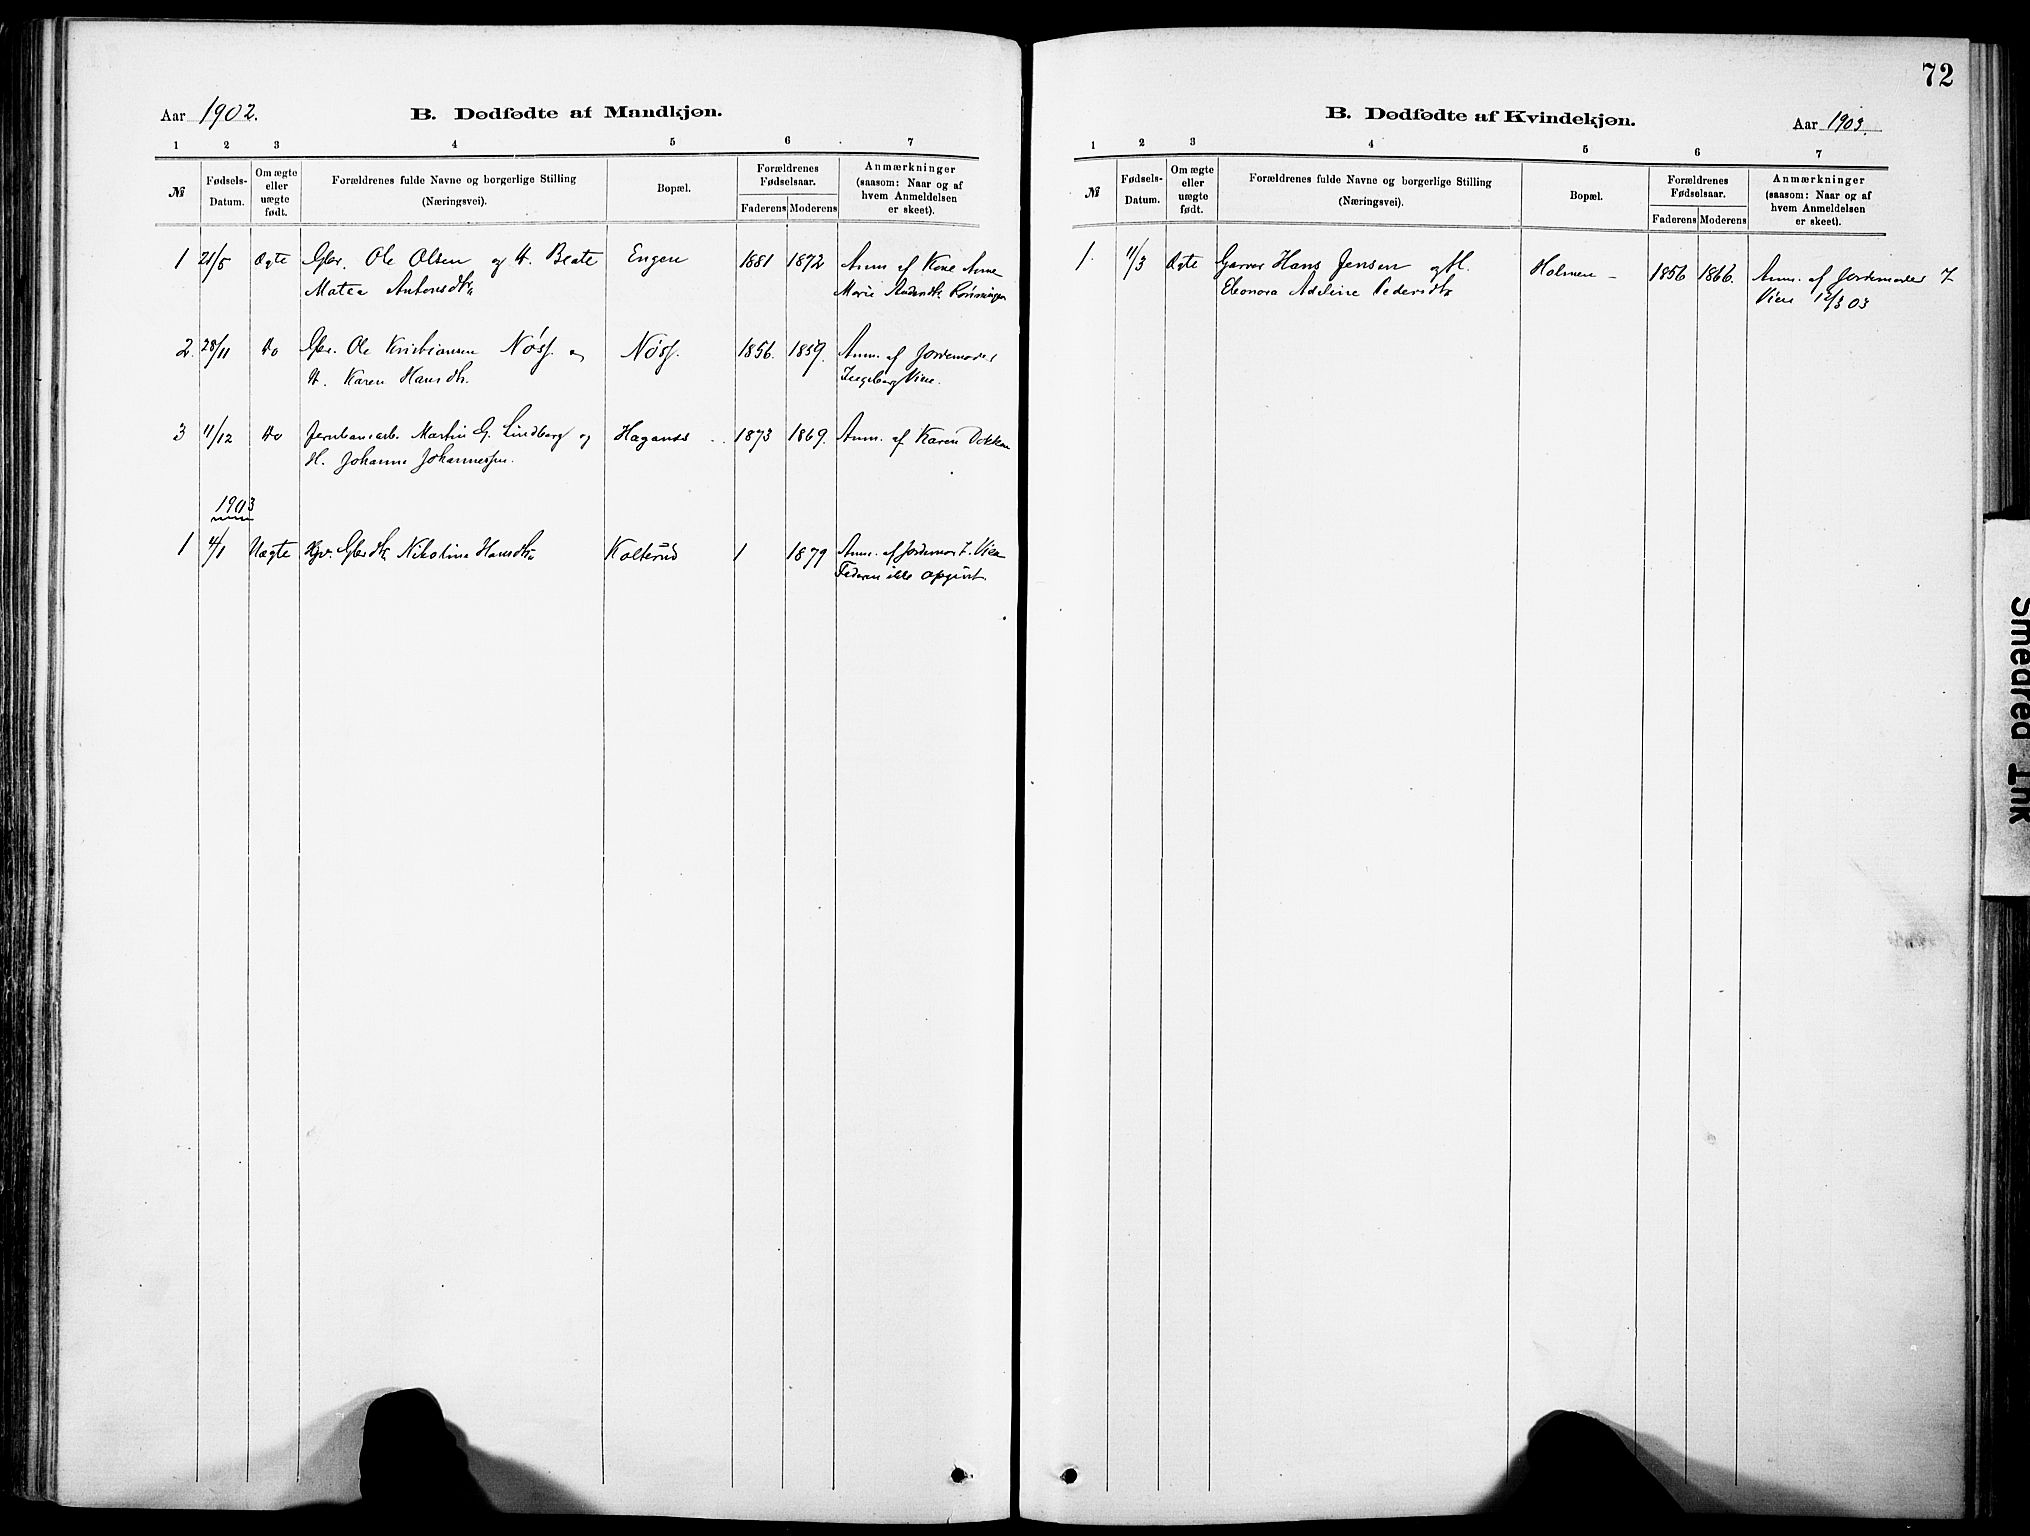 72
Aar 1902.
B. Dødfødte af Mandkjøn.
1 2 3 4 5 6 7
№
Fødsels-Datum.
Om ægte eller uægte født.
Forældrenes fulde Navne og borgerlige Stilling (Næringsvei).
Bopæl.
Forældrenes Fødselsaar.
Faderens Moderens
Anmærkninger (saasom: Naar og af hvem Anmeldelsen er skeet).
1 21/5 Ægte Gbr. Ole Olsen og H. Beate Engen 1881 1872 Anm. af Kone Anne
Matea Antonsdtr. Marie Andersdtr. Rønningen
2. 28/11 Do Gbr. Ole Kristiansen Nøss og Nøss. 1856. 1859. Anm. af Jordemoder
H. Karen Hansdtr. Ingeborg Vien.
3 11/12 Do Jernbanearb. Martin G. Lindberg og Haganes 1873 1869. Anm. af Karen Dokken
H. Johanne Johannessen.
1903
1 4/1 Uægte Gbrdtr. Nikoline Hansdtr. Kolterud 1 1879 Anm. af Jordemor I. Vien
Faderen ikke opgivet.
B. Dødfødte af Kvindekjøn.
Aar 1903.
1 2 3 4 5 6 7
№
Fødsels-Datum.
Om ægte eller uægte født.
Forældrenes fulde Navne og borgerlige Stilling (Næringsvei).
Bopæl.
Forældrenes Fødselsaar.
Faderens Moderens
Anmærkninger (saasom: Naar og af hvem Anmeldelsen er skeet).
1. 11/3 Ægte Garver Hans Jensen og H. Holmen – 1856 1866. Anm. af Jordemoder I
Eleonora Adeline Pedersdtr. Vien 12/3 03
Smeared Ink